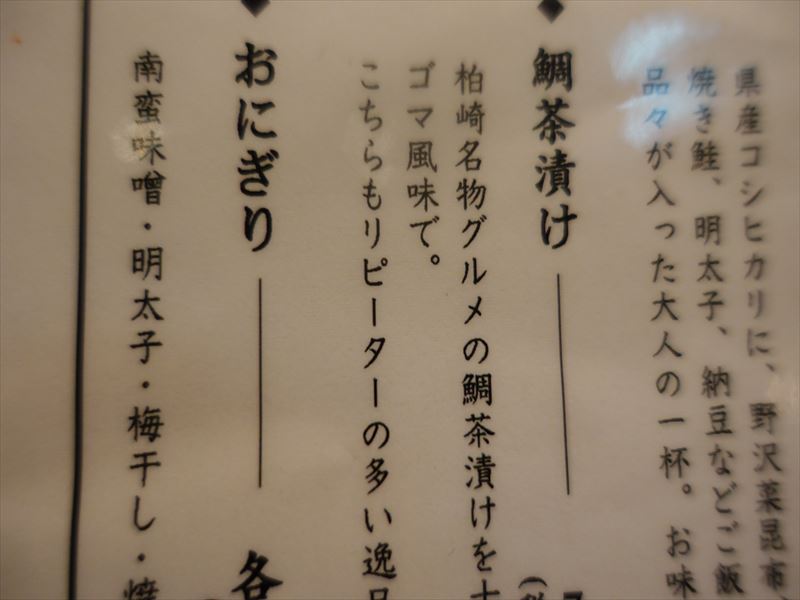 県産コシヒカリに、野沢菜昆布、
焼き鮭、明太子、納豆などご飯
品々が入った大人の一杯。お味
◆鯛茶漬け
柏崎名物グルメの鯛茶漬けを
ゴマ風味で。
こちらもリピーターの多い逸品
◆おにぎり 各
南蛮味噌・明太子・梅干し・焼